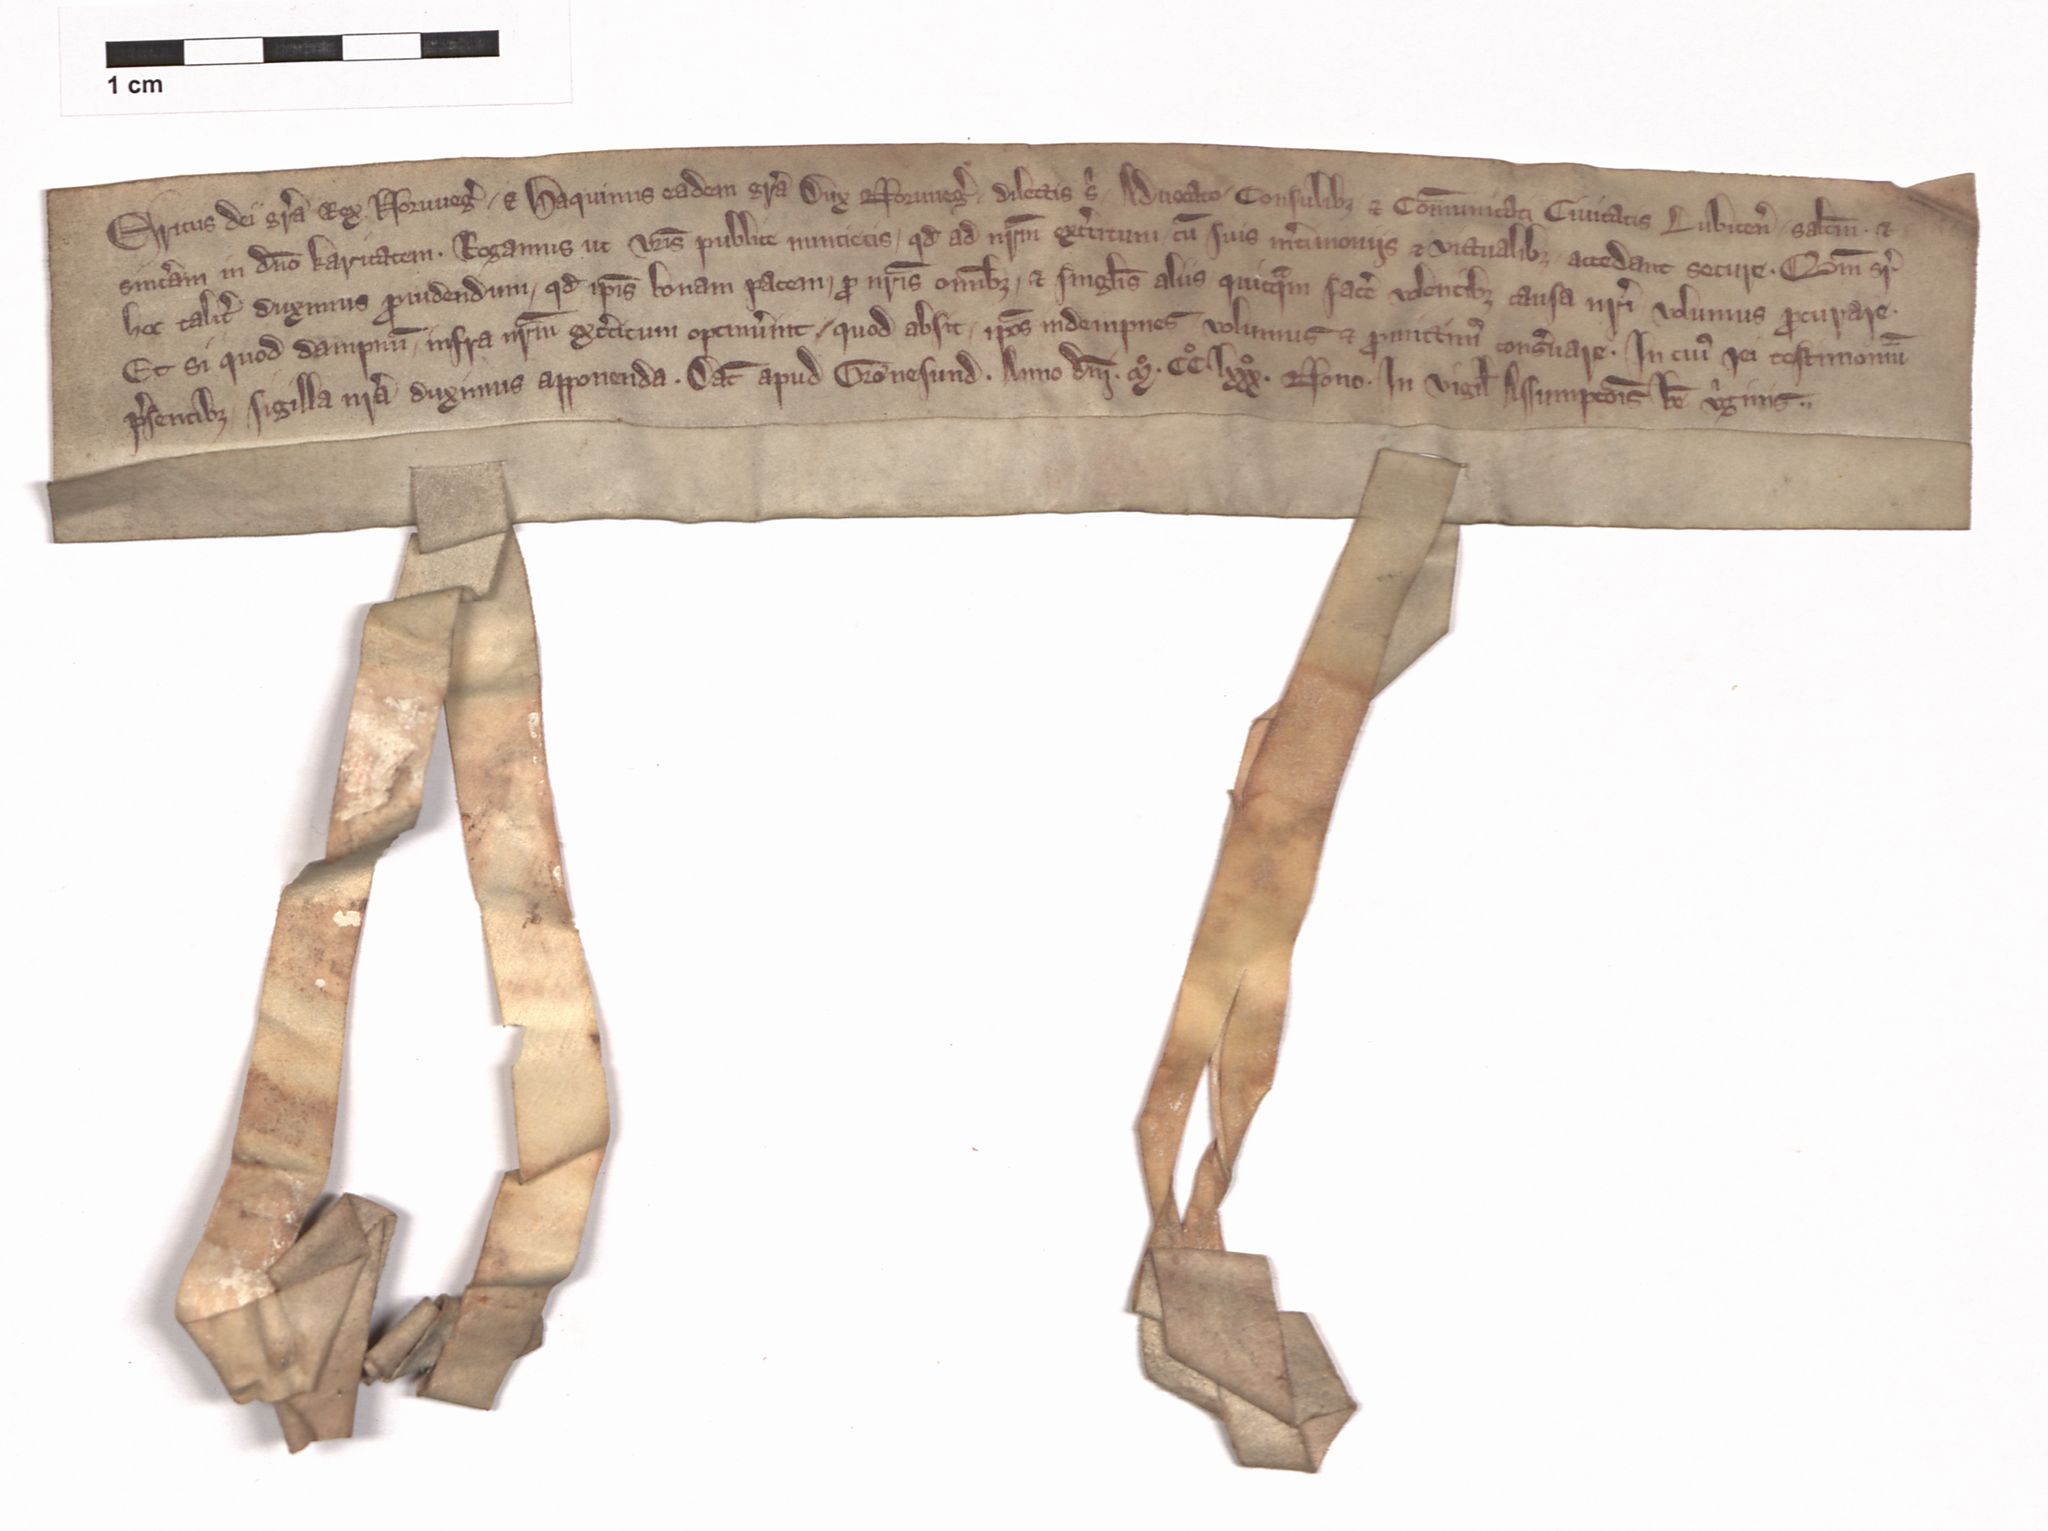 1 cm
Ericus dei gr̄a Rex Noruueg̉ / & Haquinus eadem gr̄a Dux Norwueg̉ / dilectis s̉ / Aduocato / Consulibꝫ & Com̄unitati Ciuitatis Lubicen̉ / salt̄m . &
sinc̉am in dn̄o karitatem . Rogamus ut vr̄is pubblice nuncietis / qd̄ ad nr̄m exc̉citum / cū suis m̉cimoniis & victualibꝫ / accedant secure .
hoc talit̉ duximus ꝓuidendum / qd̄ ip̄is bonam pacem / ꝓ nr̄is om̄ibꝫ / & singl̄is aliis quicq̄m fac̉e volentibꝫ causa nr̄i volumus ꝓcurare .
Et si quod dampnū / infra nr̄m exc̉citum optinủint / quod absit / ip̄os indempnes volumus & ꝓmittim᷒ cons̉uare . In cui᷒ rei testimoniū
p̉sentibꝫ sigilla nr̄a duximus apponenda . Dat̄ apud Grōnesund . Anno dn̄i . mͦ . ccͦ . lxxxͦ . Nono . In vigil̄ Assumpcōis be̅ v̉ginis . .